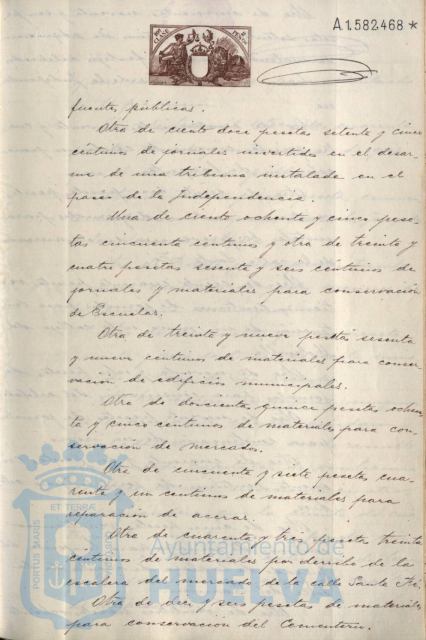 A1.582.468 *
fuentes públicas.
Otra de ciento doce pesetas setenta y cinco
céntimos de jornales invertidos en el desar-
me de una tribuna instalada en el
paseo de la Independencia.
Una de ciento ochenta y cinco pese-
tas cincuenta céntimos y otra de treinta y
cuatro pesetas sesenta y seis céntimos de
jornales y materiales para conservación
de Escuelas.
Otra de treinta y nueve pesetas sesenta
y nueve céntimos de materiales para conser-
vación de edificios municipales.
Otra de doscientas quince pesetas ochen-
ta y cinco céntimos de materiales para con-
servación de mercados.
Otra de cincuenta y siete pesetas cua-
renta y un céntimos de materiales para
reparación de aceras.
Otra de cuarenta y tres pesetas treinta
céntimos de materiales por derribo de la
escalera del mercado de la calle Santa Fé.
Otra de diez y seis pesetas de materiales
para conservación del Cementerio.
PORTUS MARIS
ET TERRAE
Ayuntamiento de
HUELVA